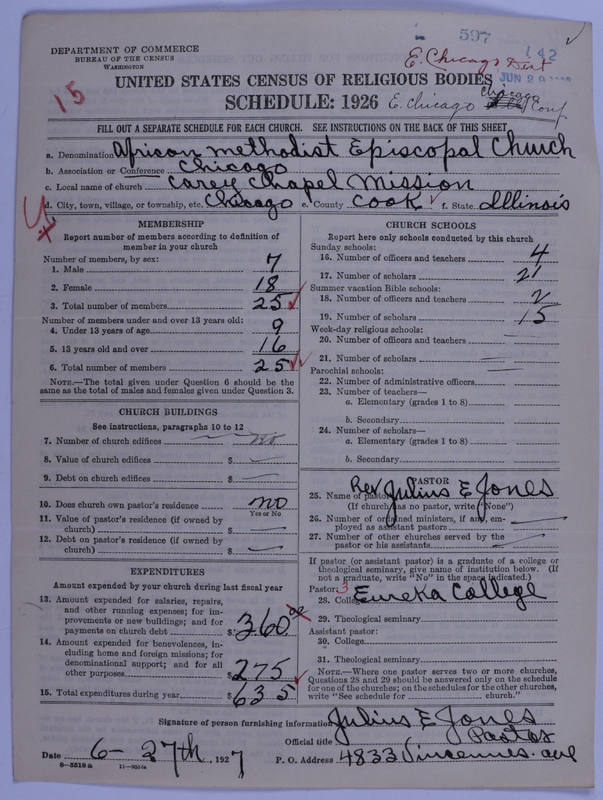 597
142
DEPARTMENT OF COMMERCE
BUREAU OF THE CENSUS
WASHINGTON
E. Chicago Dist
JUN 29
15
UNITED STATES CENSUS OF RELIGIOUS BODIES
SCHEDULE: 1926
E. Chicago Chicago Conf
FILL OUT A SEPARATE SCHEDULE FOR EACH CHURCH. SEE INSTRUCTIONS ON THE BACK OF THIS SHEET
a. Denomination African Methodist Episcopal Church
b. Association or Conference Chicago
c. Local name of church Carey Chapel Mission
d. City, town, village, or township, etc. Chicago e. County Cook f. State Illinois
MEMBERSHIP
Report number of members according to definition of
member in your church
Number of members, by sex:
1. Male 7
2. Female 18
3. Total number of members 25
Number of members under and over 13 years old:
4. Under 13 years of age 9
5. 13 years old and over 16
6. Total number of members 25
NOTE.—The total given under Question 6 should be the
same as the total of males and females given under Question 3.
CHURCH BUILDINGS
See instructions, paragraphs 10 to 12
7. Number of church edifices no
8. Value of church edifices $
9. Debt on church edifices $
10. Does church own pastor's residence no
Yes or No
11. Value of pastor's residence (if owned by
church) $
12. Debt on pastor's residence (if owned by
church) $
EXPENDITURES
Amount expended by your church during last fiscal year
13. Amount expended for salaries, repairs,
and other running expenses; for im-
provements or new buildings; and for
payments on church debt $ 360.00
14. Amount expended for benevolences, in-
cluding home and foreign missions; for
denominational support; and for all
other purposes $ 275
15. Total expenditures during year $ 635
CHURCH SCHOOLS
Report here only schools conducted by this church
Sunday schools:
16. Number of officers and teachers 4
17. Number of scholars 21
Summer vacation Bible schools:
18. Number of officers and teachers 2
19. Number of scholars 15
Week-day religious schools:
20. Number of officers and teachers
21. Number of scholars
Parochial schools:
22. Number of administrative officers
23. Number of teachers—
a. Elementary (grades 1 to 8)
b. Secondary
24. Number of scholars—
a. Elementary (grades 1 to 8)
b. Secondary
PASTOR
25. Name of pastor Rev Julius E Jones
(If church has no pastor, write "None")
26. Number of ordained ministers, if any, em-
ployed as assistant pastors
27. Number of other churches served by the
pastor or his assistants
If pastor (or assistant pastor) is a graduate of a college or
theological seminary, give name of institution below. (If
not a graduate, write "No" in the space indicated.)
Pastor: 3
28. College Eureka College
29. Theological seminary
Assistant pastor:
30. College
31. Theological seminary
NOTE.—Where one pastor serves two or more churches,
Questions 28 and 29 should be answered only on the schedule
for one of the churches; on the schedules for the other churches,
write "See schedule for church."
Signature of person furnishing information Julius E Jones
Official title Pastor
Date 6-27th, 1927 P. O. Address 4833 Vincennes ave
8-5518 a